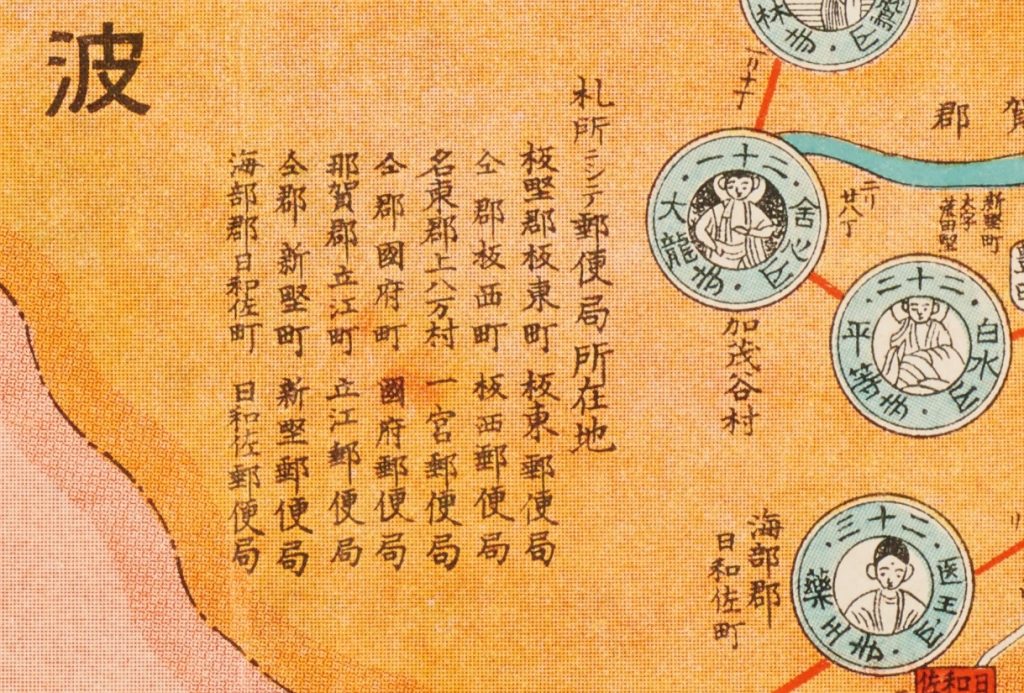 賀郡
一リ十丁
新墅町
大字
荒田墅
二リ
廿八丁
二十一
舍心山
大龍寺
加茂谷村
二十二
白水山
平等寺
二十三
医王山
藥王寺
海部郡
日和佐町
日和佐
札所ニシテ郵便局所在地
板墅郡板東町 板東郵便局
仝郡板西町 板西郵便局
名東郡上八万村 一宮郵便局
仝郡國府町 國府郵便局
那賀郡立江町 立江郵便局
仝郡新墅町 新墅郵便局
海部郡日和佐町 日和佐郵便局
波